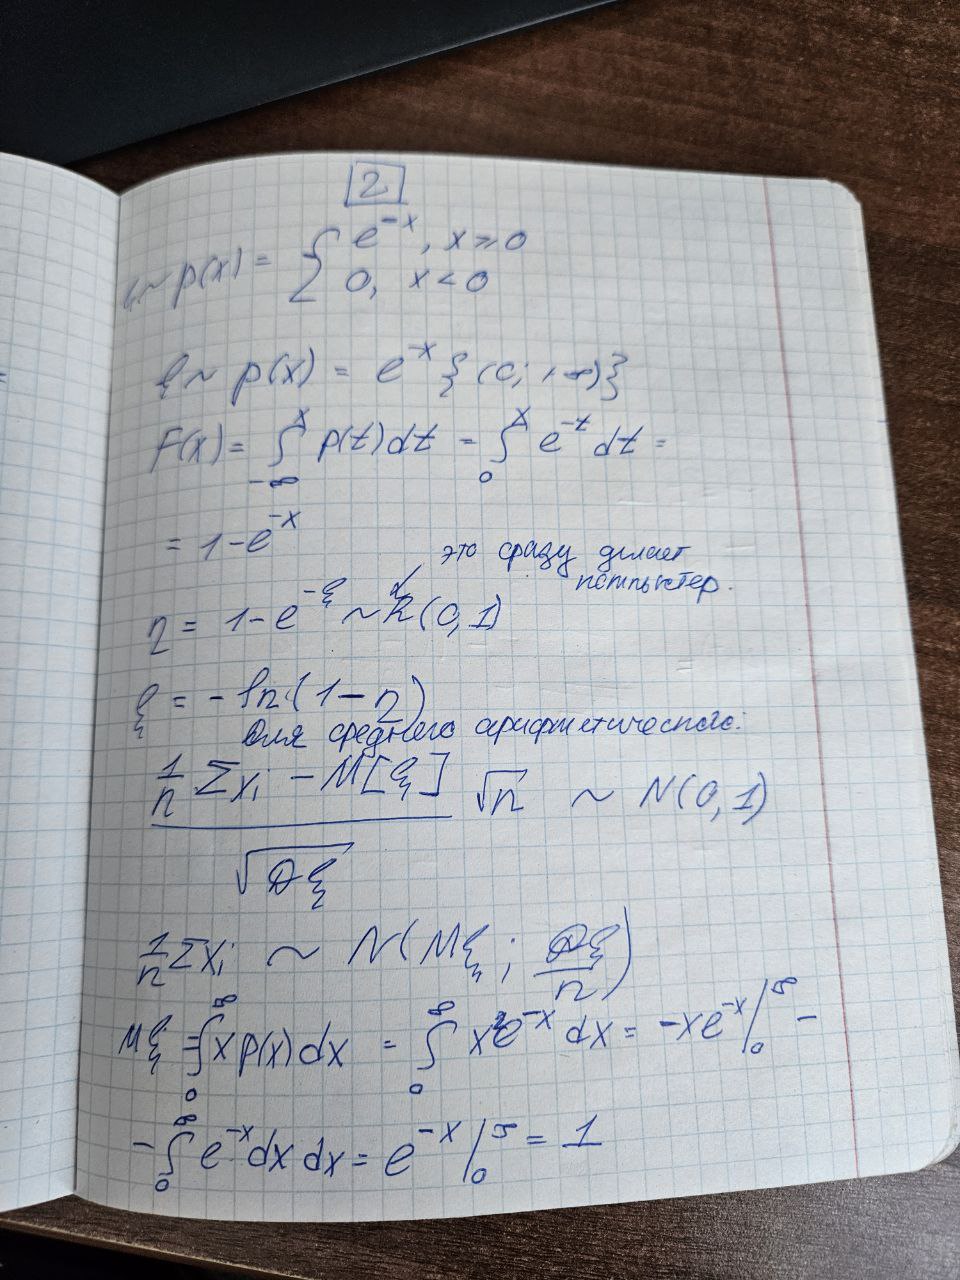 2
ξ ~ p(x) = { e^{-x}, x ≥ 0
0, x < 0
ξ ~ p(x) = e^{-x} {(0; +∞)}
F(x) = ∫_{-∞}^{x} p(t)dt = ∫_{0}^{x} e^{-t} dt =
= 1 - e^{-x}
это сразу делает
компьютер.
η = 1 - e^{-ξ} ~ R(0, 1)
ξ = - ln(1 - η)
Для среднего арифметического:
\frac{\frac{1}{n} Σx_i - M[ξ]}{\sqrt{Dξ}} \sqrt{n} ~ N(0, 1)
\frac{1}{n} Σx_i ~ N(Mξ; \frac{Dξ}{n})
Mξ = ∫_{0}^{∞} x p(x)dx = ∫_{0}^{∞} x e^{-x} dx = -xe^{-x} |_{0}^{∞} -
- ∫_{0}^{∞} e^{-x} dx dx = e^{-x} |_{0}^{∞} = 1